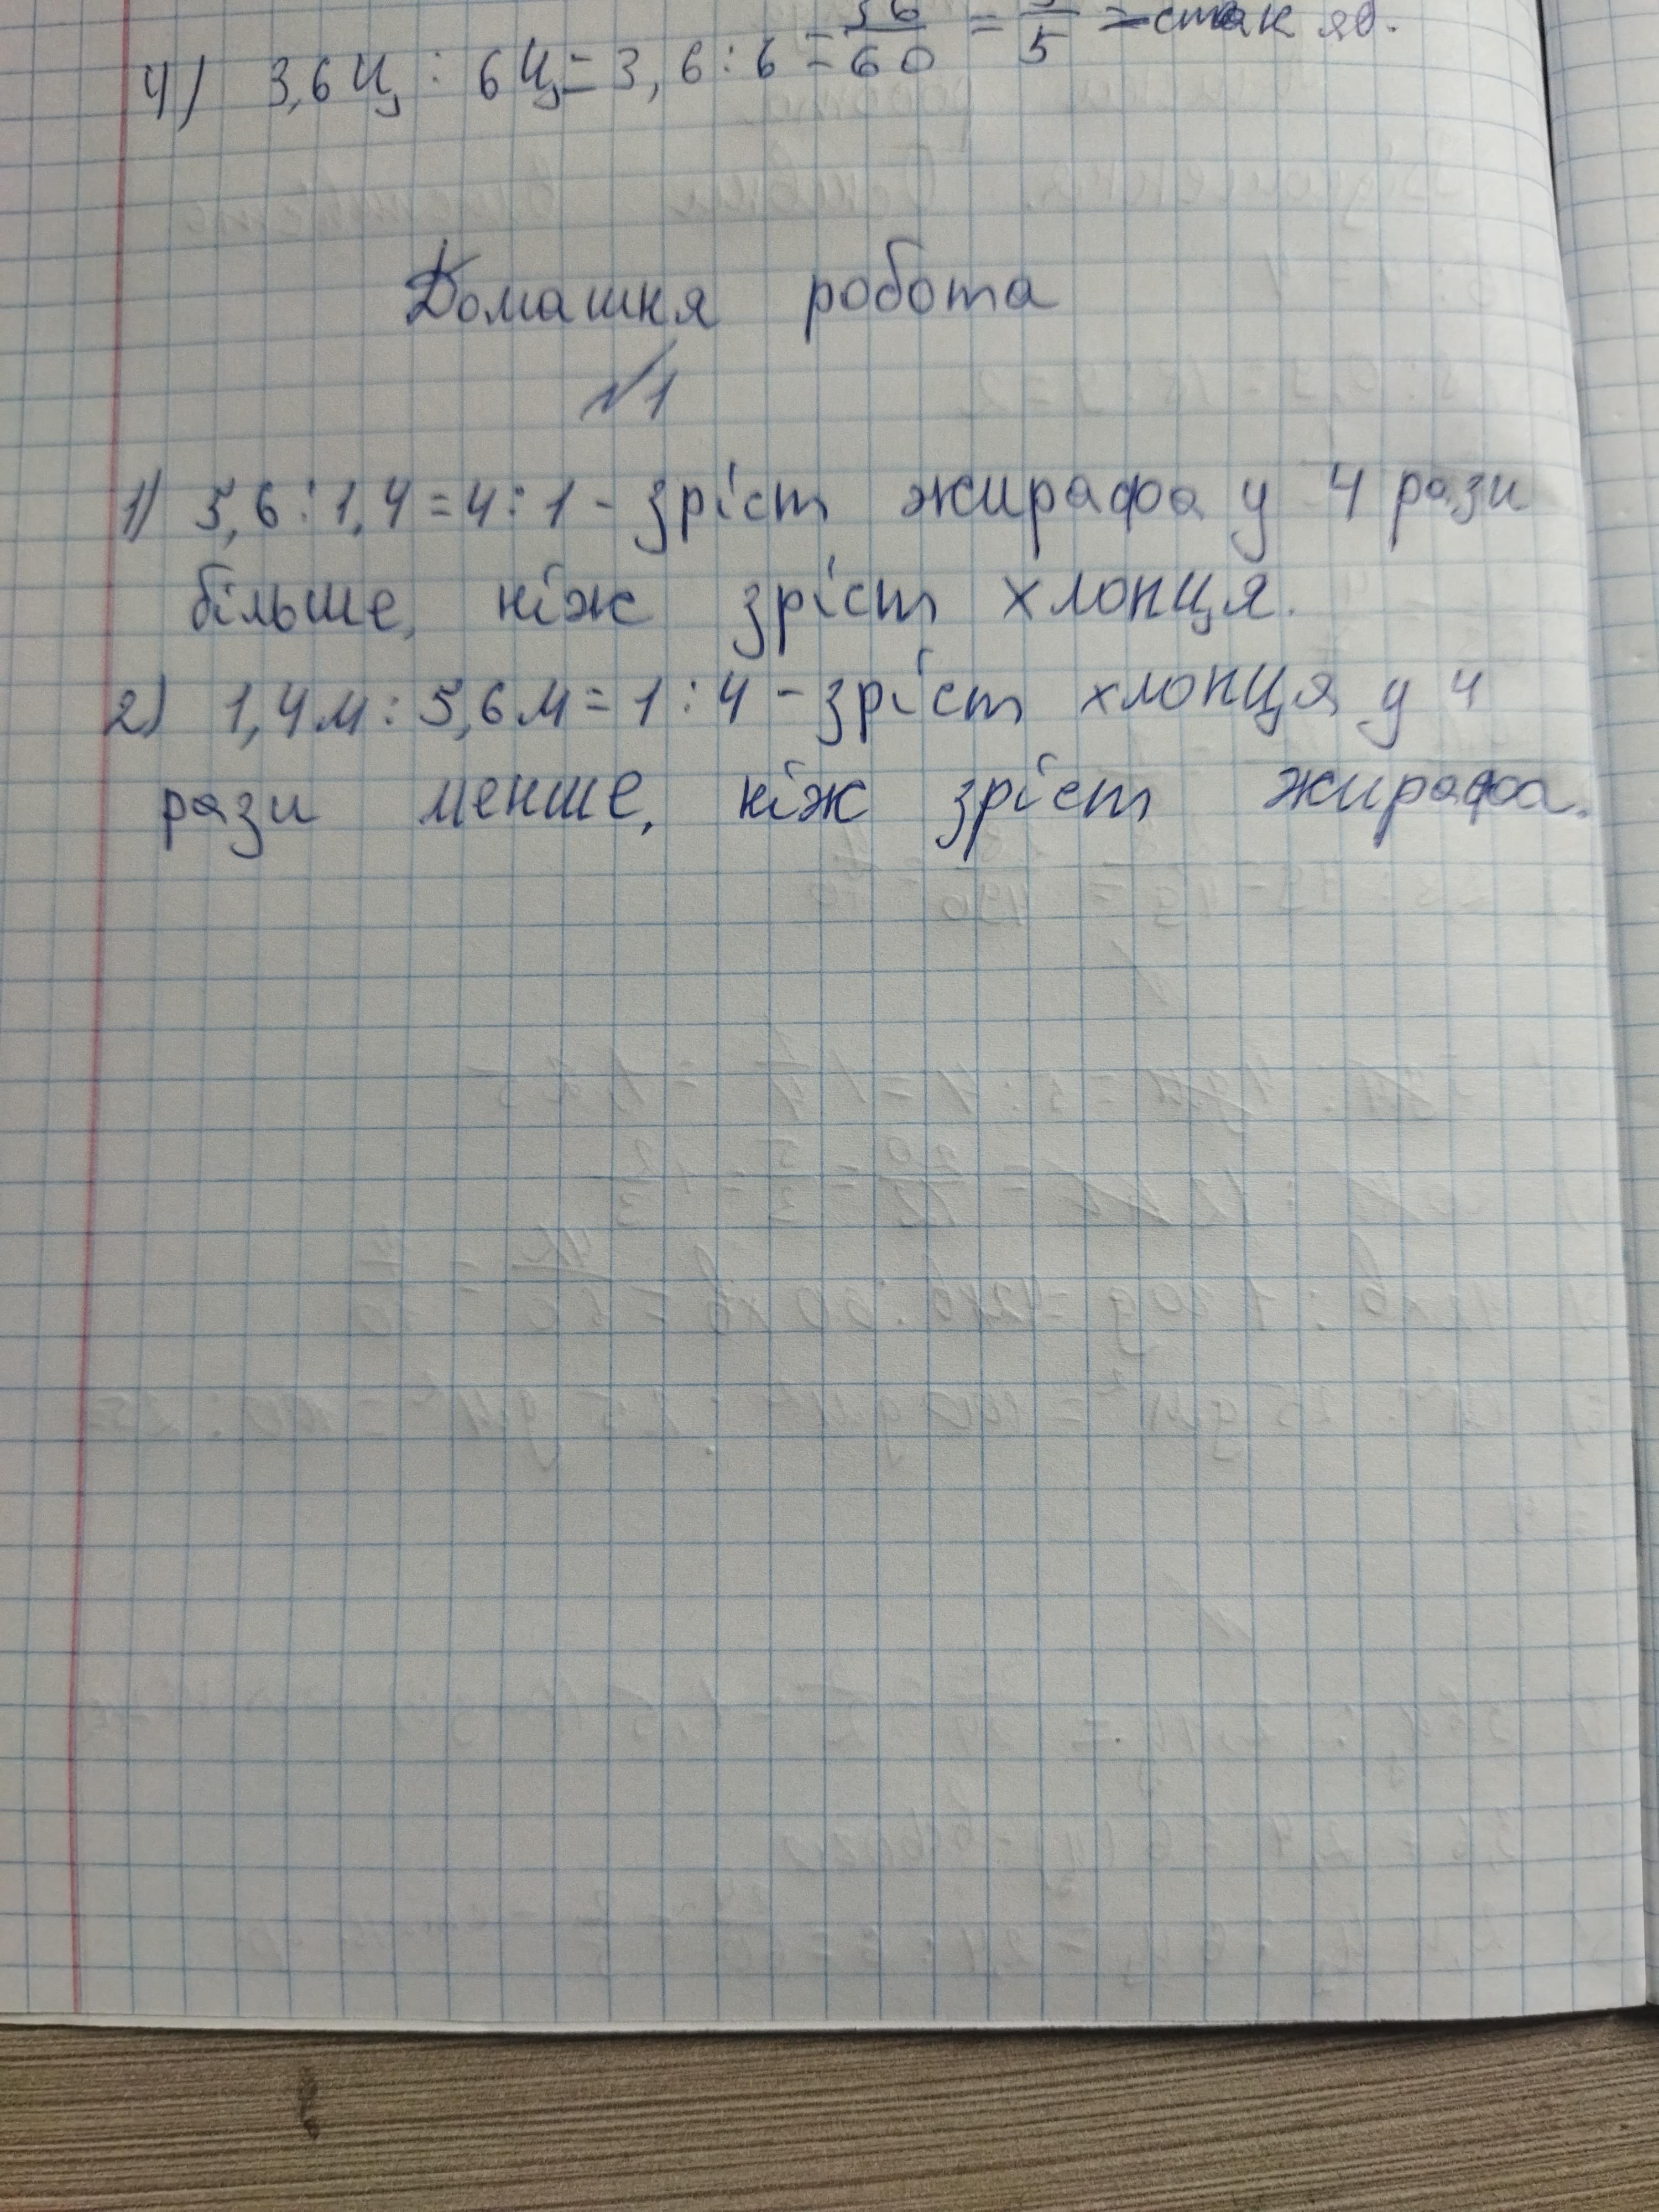 4) 3,6ц : 6ц = 3,6 : 6 = 36/60 = 3/5 =
Домашня робота
№1
1) 5,6 : 1,4 = 4 : 1 - зріст жирафа у 4 рази
більше, ніж зріст хлопця.
2) 1,4м : 5,6м = 1 : 4 - зріст хлопця у 4
рази менше, ніж зріст жирафа.